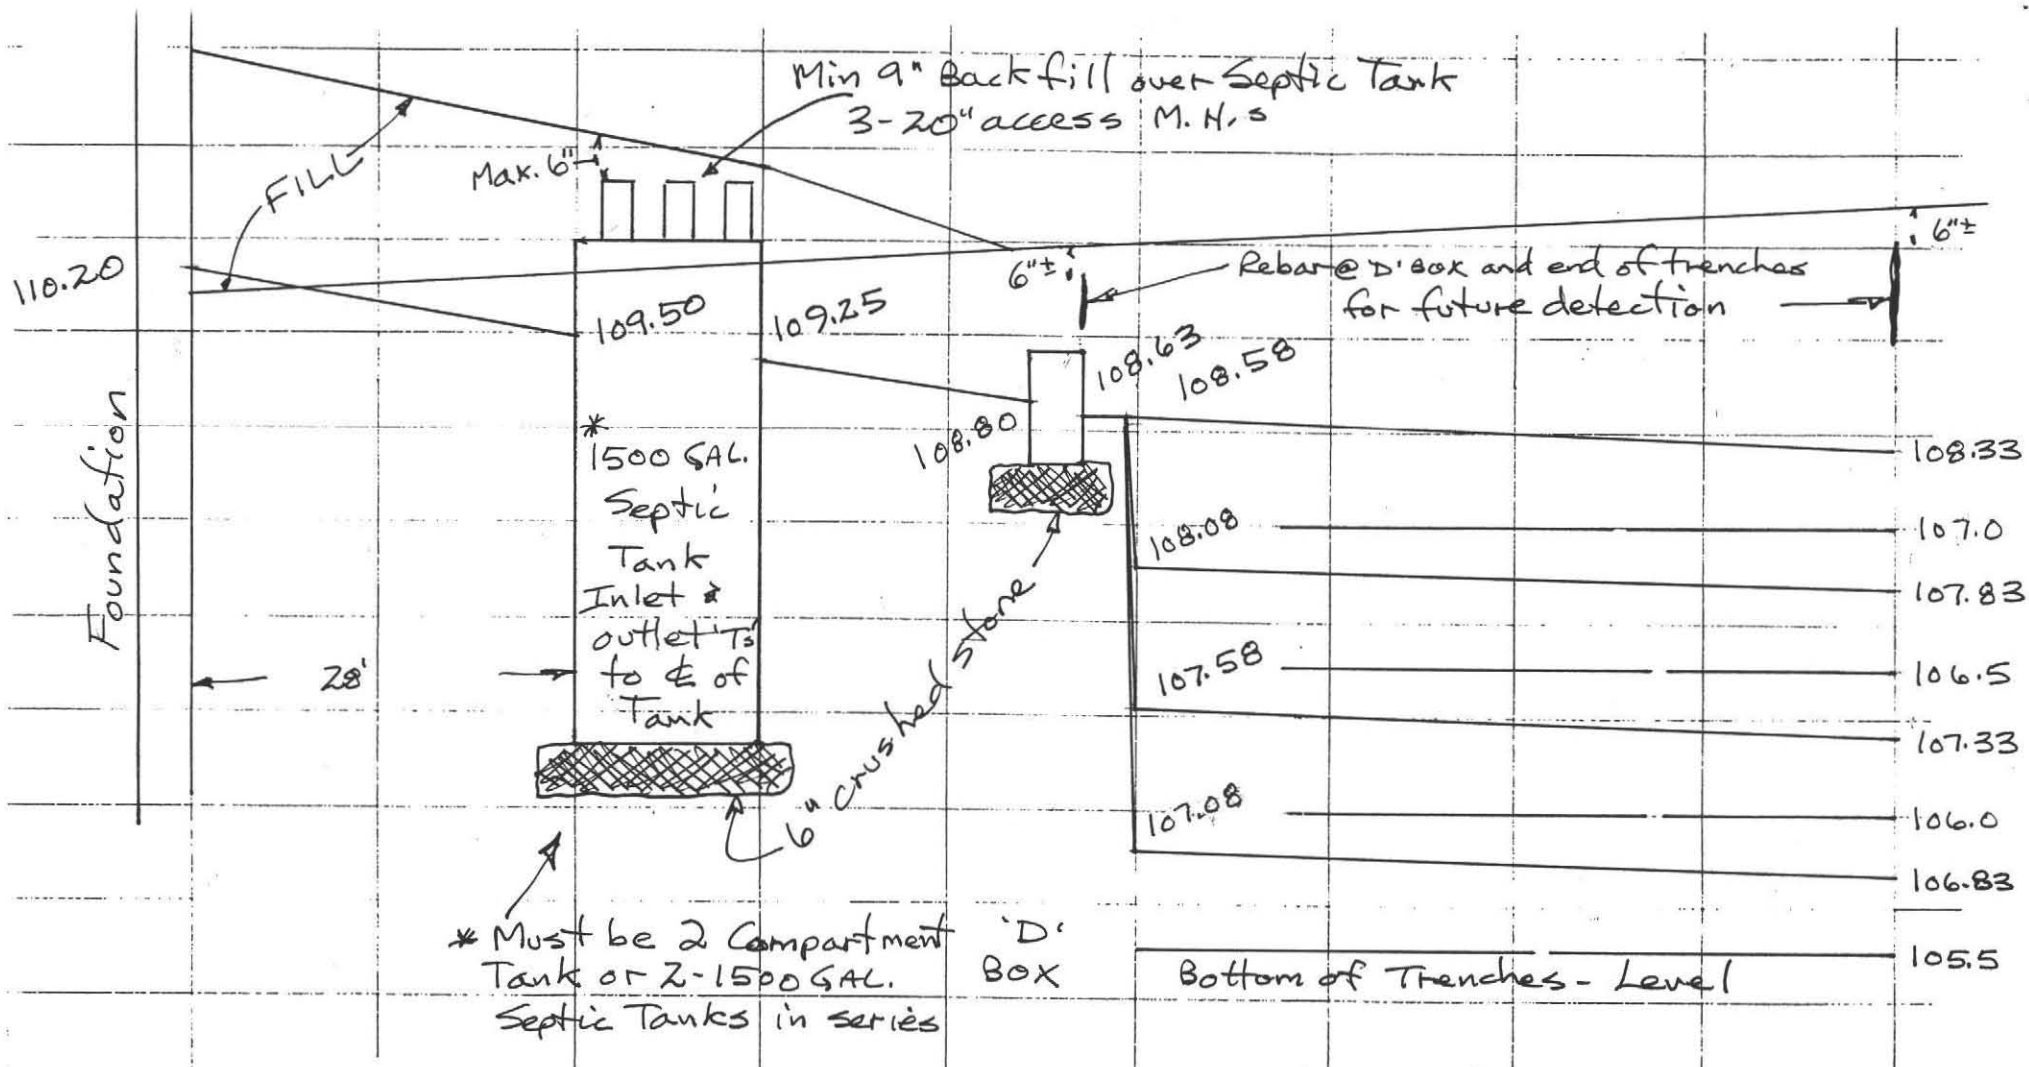 Min 9" Backfill over Septic Tank
3-20" access M.H.s
Max. 6"
FILL
110.20
6"±
6"±
Rebar@'D'Box and end of trenches
for future detection
109.50
109.25
108.63
108.58
108.80
Foundation
*
1500 GAL.
Septic
Tank
Inlet &
outlet 'Ts'
to ℄ of
Tank
28'
6" crushed stone
108.33
108.08
107.0
107.83
107.58
106.5
107.33
107.08
106.0
106.83
105.5
* Must be 2 Compartment
Tank or 2-1500 GAL.
Septic Tanks in series
'D'
BOX
Bottom of Trenches - Level